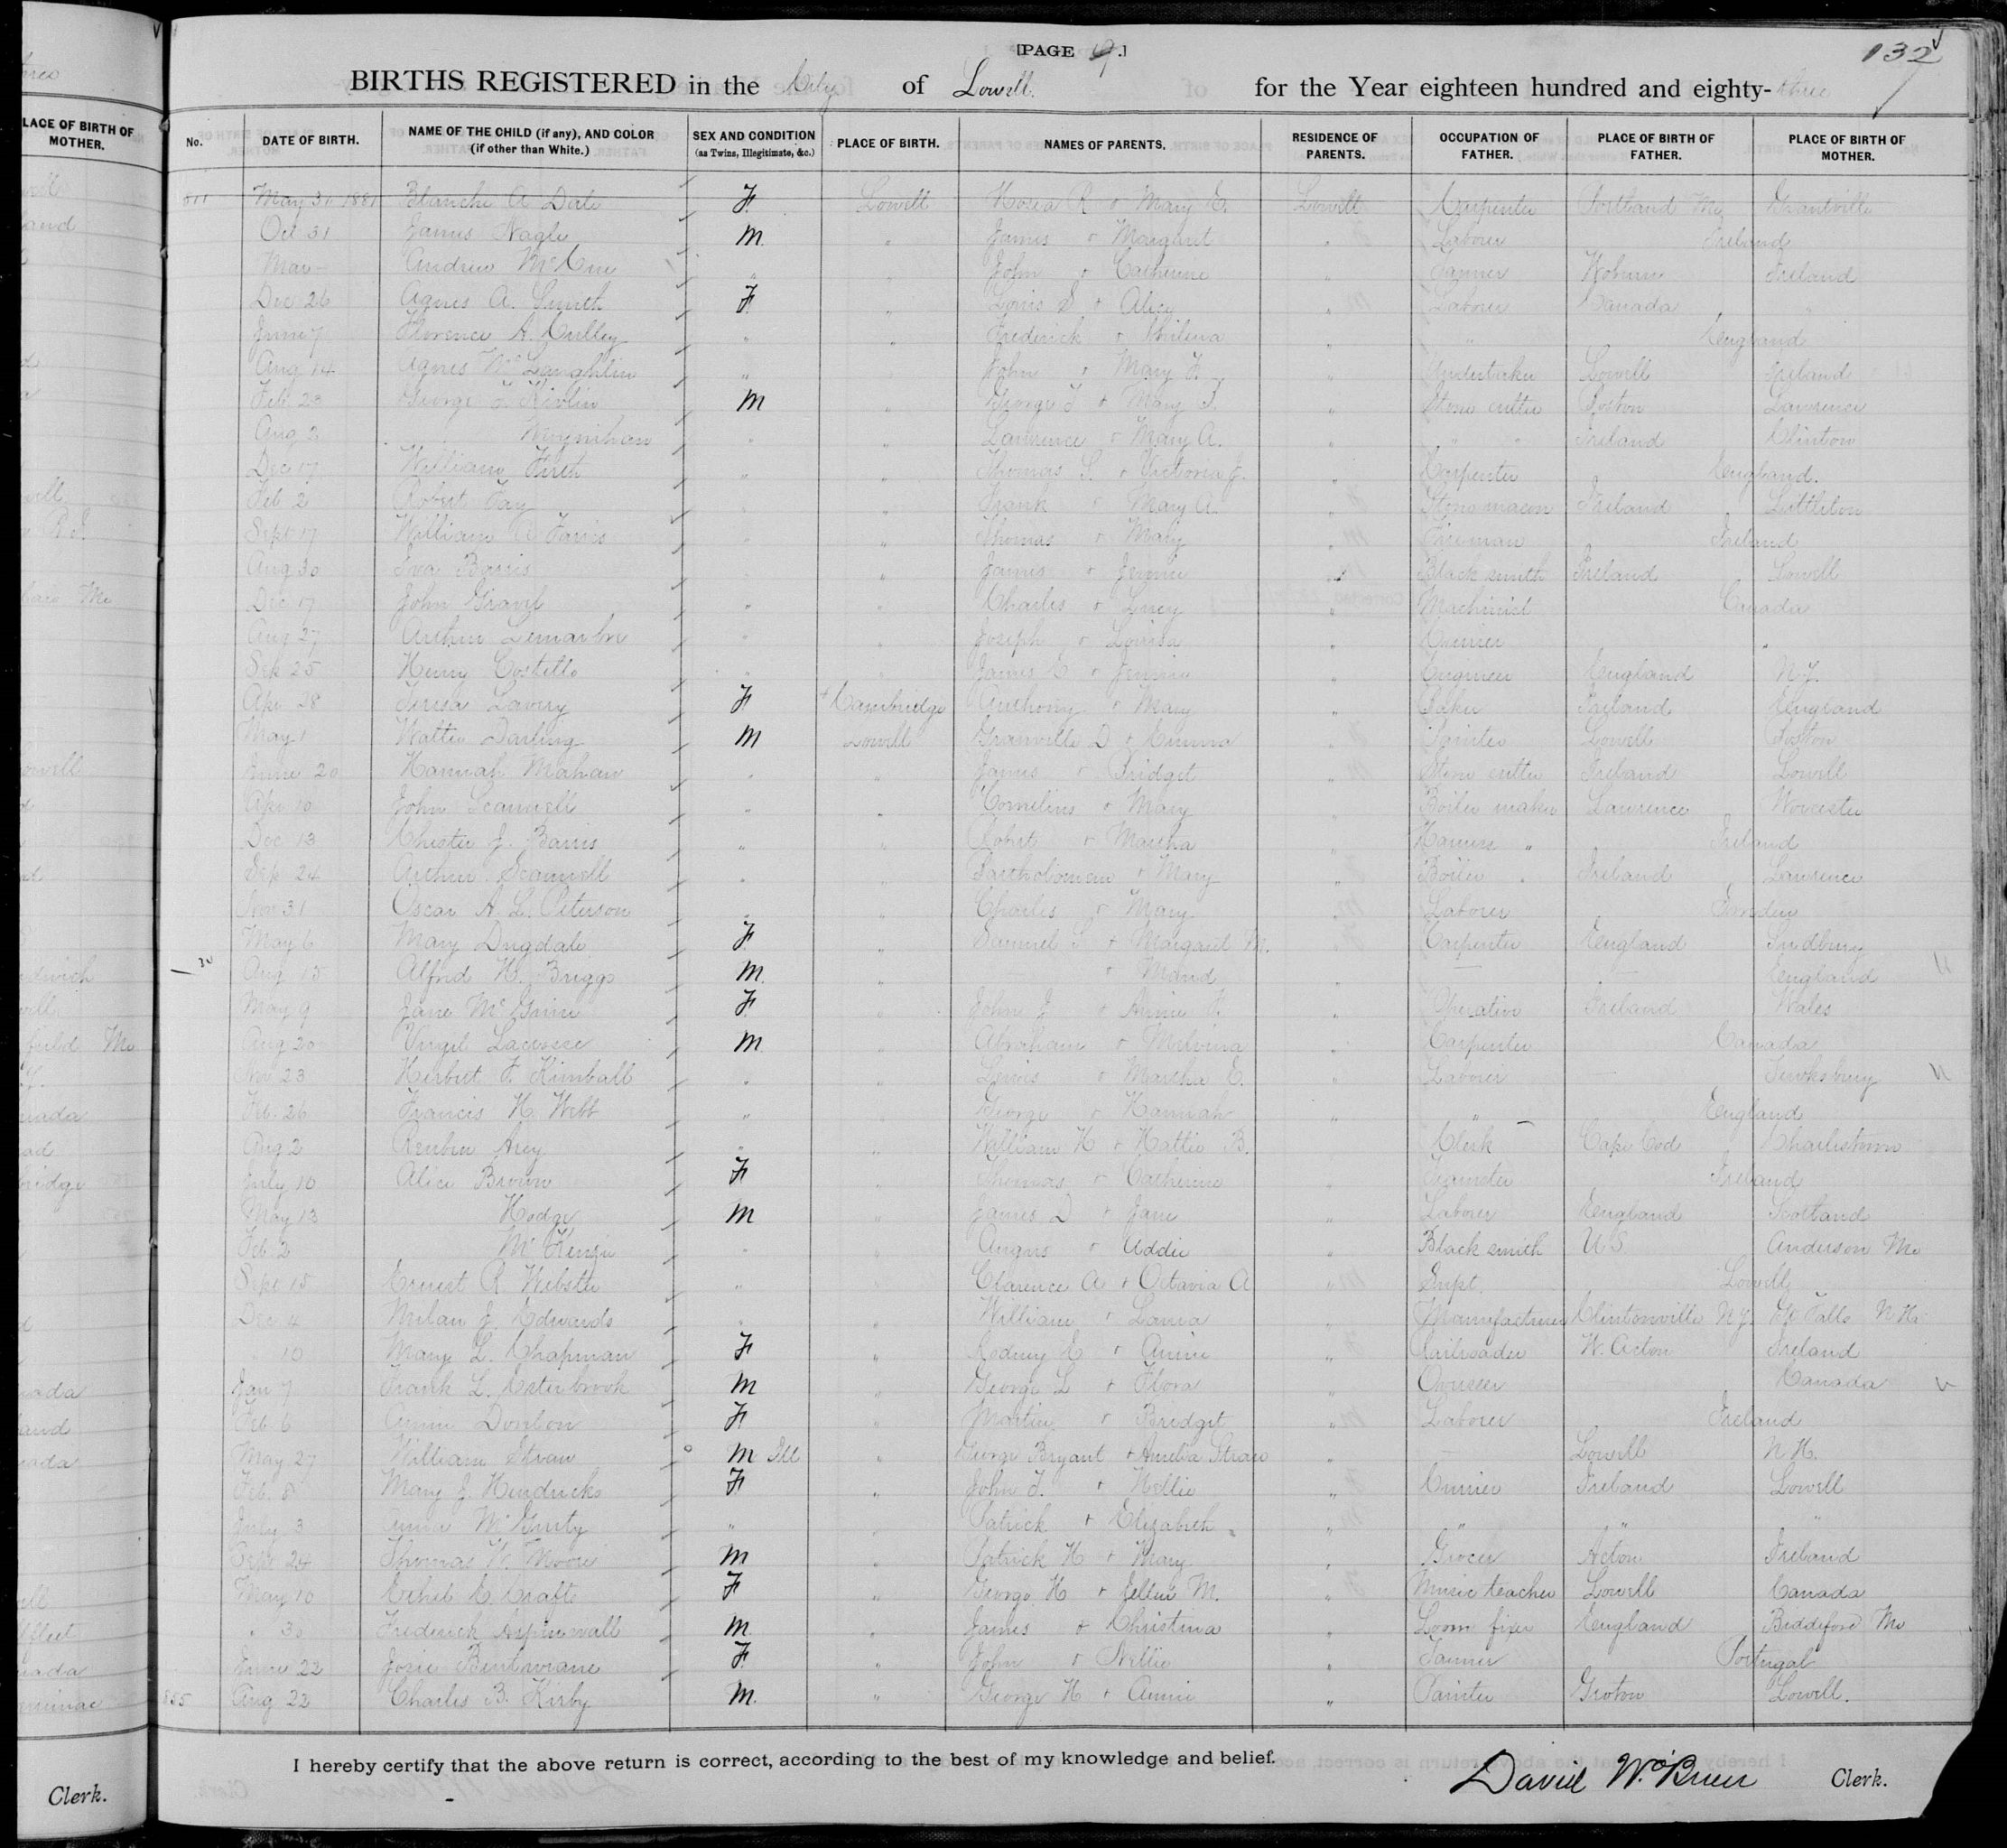 [PAGE 9.] 132
BIRTHS REGISTERED in the City of Lowell for the Year eighteen hundred and eighty-three
No. DATE OF BIRTH. NAME OF THE CHILD (if any), AND COLOR (if other than White.) SEX AND CONDITION (as Twins, Illegitimate, &c.) PLACE OF BIRTH. NAMES OF PARENTS. RESIDENCE OF PARENTS. OCCUPATION OF FATHER. PLACE OF BIRTH OF FATHER. PLACE OF BIRTH OF MOTHER.
811 May 31 1881 Blanche A Dale F. Lowell Hosea R + Mary E. Lowell Carpenter Portland Me Grantville
Oct 31 James Nagle M. " James + Margaret " Laborer Ireland
Mar - Andrew McCue " " John + Catherine " Tanner Woburn Ireland
Dec 26 Agnes A. Smith F " Louis S + Alice " Laborer Canada "
June 7 Florence A. Culley " " Frederick + Philena " " England
Aug 14 Agnes McLaughlin " John + Mary F. " Undertaker Lowell Ireland
Feb 23 George F. Kivlin M " George F + Mary F. " Stone cutter Boston Lawrence
Aug 2 Moynihan " " Lawrence + Mary A. " " " Ireland Clinton
Dec 17 William Firth " " Thomas S. + Victoria J. " Carpenter England.
Feb 2 Robert Fay " " Frank + Mary A. " Stone mason Ireland Littleton
Sept 17 William A Farris " " Thomas + Mary " Fireman Ireland
Aug 30 Barris " James + Jennie " Black smith Ireland Lowell
Dec 17 John Gravel " " Charles + Lucy " Machinist Canada
Aug 27 Arthur " " Joseph + Louisa " Currier "
Sep 25 Henry Costello " James E + Jennie " Engineer England N.Y.
Apr 28 Teresa Lavery F + Cambridge Anthony + Mary " Baker Ireland England
May 1 Walter Darling M Lowell Granville D + Emma " Painter Lowell Boston
June 20 Hannah Mahan " " James + Bridget " Stone cutter Ireland Lowell
Apr 10 John Scannell " " Cornelius + Mary " Boiler maker Lawrence Worcester
Dec 13 Chester J. Barris " " Robert + Martha " Harness " Ireland
Sep 24 Arthur Scannell " " Bartholomew + Mary " Boiler " Ireland Lawrence
Nov 31 Oscar A. L. Peterson " " Charles + Mary " Laborer Sweden
May 6 Mary Dugdale F " Samuel S. + Margaret M. " Carpenter England Sudbury
Aug 15 Alfred H. Briggs M. " + Maud " — — England
May 9 Jane McGuire F. " John J + Annie F. " Operative Ireland Wales
Aug 20 Virgil Lacrosse M " Abraham + Melvina " Carpenter Canada
Nov 23 Herbert F. Kimball " " Lewis + Martha E. " Laborer — Tewksbury
Feb 26 Francis H. Webb " " George + Hannah " " England
Aug 2 Reuben Arey " " William H + Hattie B. Clerk Cape Cod Charlestown
July 10 Alice Brown F " Thomas + Catherine " Teamster Ireland
May 13 Hodge M " James D + Jane " Laborer England Scotland
Feb 2 McKenzie " " Angus + Addie " Black smith U.S. Anderson Me
Sept 15 Ernest R. Webster " " Clarence A + Octavia A " Supt. Lowell
Dec 4 Milan J. Edwards " " William + Laura " Manufacturer Clintonville N.Y. Gt Falls N.H.
" 10 Mary L. Chapman F " Rodney E + Annie " Railroader W. Acton Ireland
Jan 7 Frank L. Esterbrook M " George L + Flora " Overseer — Canada
Feb 6 Annie Donlon F " Martin + Bridget " Laborer Ireland
May 27 William Straw M Ill " George Bryant + Amelia Straw " — Lowell N.H.
Feb. 8 Mary J. Hendricks F " John F. + Nellie " Currier Ireland Lowell
July 3 Anna McGinty " " Patrick + Elizabeth " " " "
Sept 24 Thomas W. Moore M " Patrick H + Mary " Grocer Acton Ireland
May 10 Ethel E. Crafts F " George H + Ellen M. " Music teacher Lowell Canada
" 30 Frederick Aspinwall M " James + Christina " Loom fixer England Biddeford Me
June 22 Josie F. " John + Nellie " Tanner Portugal
855 Aug 22 Charles B. Kirby M. " George H + Annie " Painter Groton Lowell.
I hereby certify that the above return is correct, according to the best of my knowledge and belief.
David W. O'Brien Clerk.
LACE OF BIRTH OF MOTHER.
Clerk.